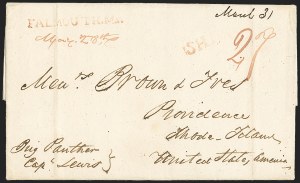 March 31
FALMOUTH.MS.
SH
27
Messrs Brown & Ives
Providence
Rhode Island
United States, America
Brig Panther
Capt Lewis